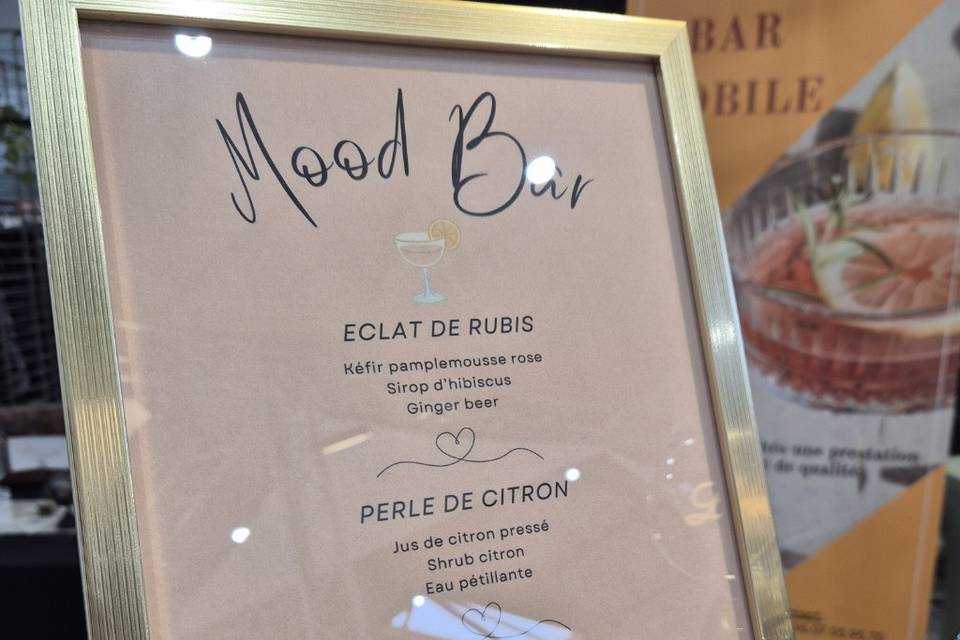 Mood Bar
ECLAT DE RUBIS
Kéfir pamplemousse rose
Sirop d'hibiscus
Ginger beer
PERLE DE CITRON
Jus de citron pressé
Shrub citron
Eau pétillante
BAR
OBILE
une prestation
de qualité